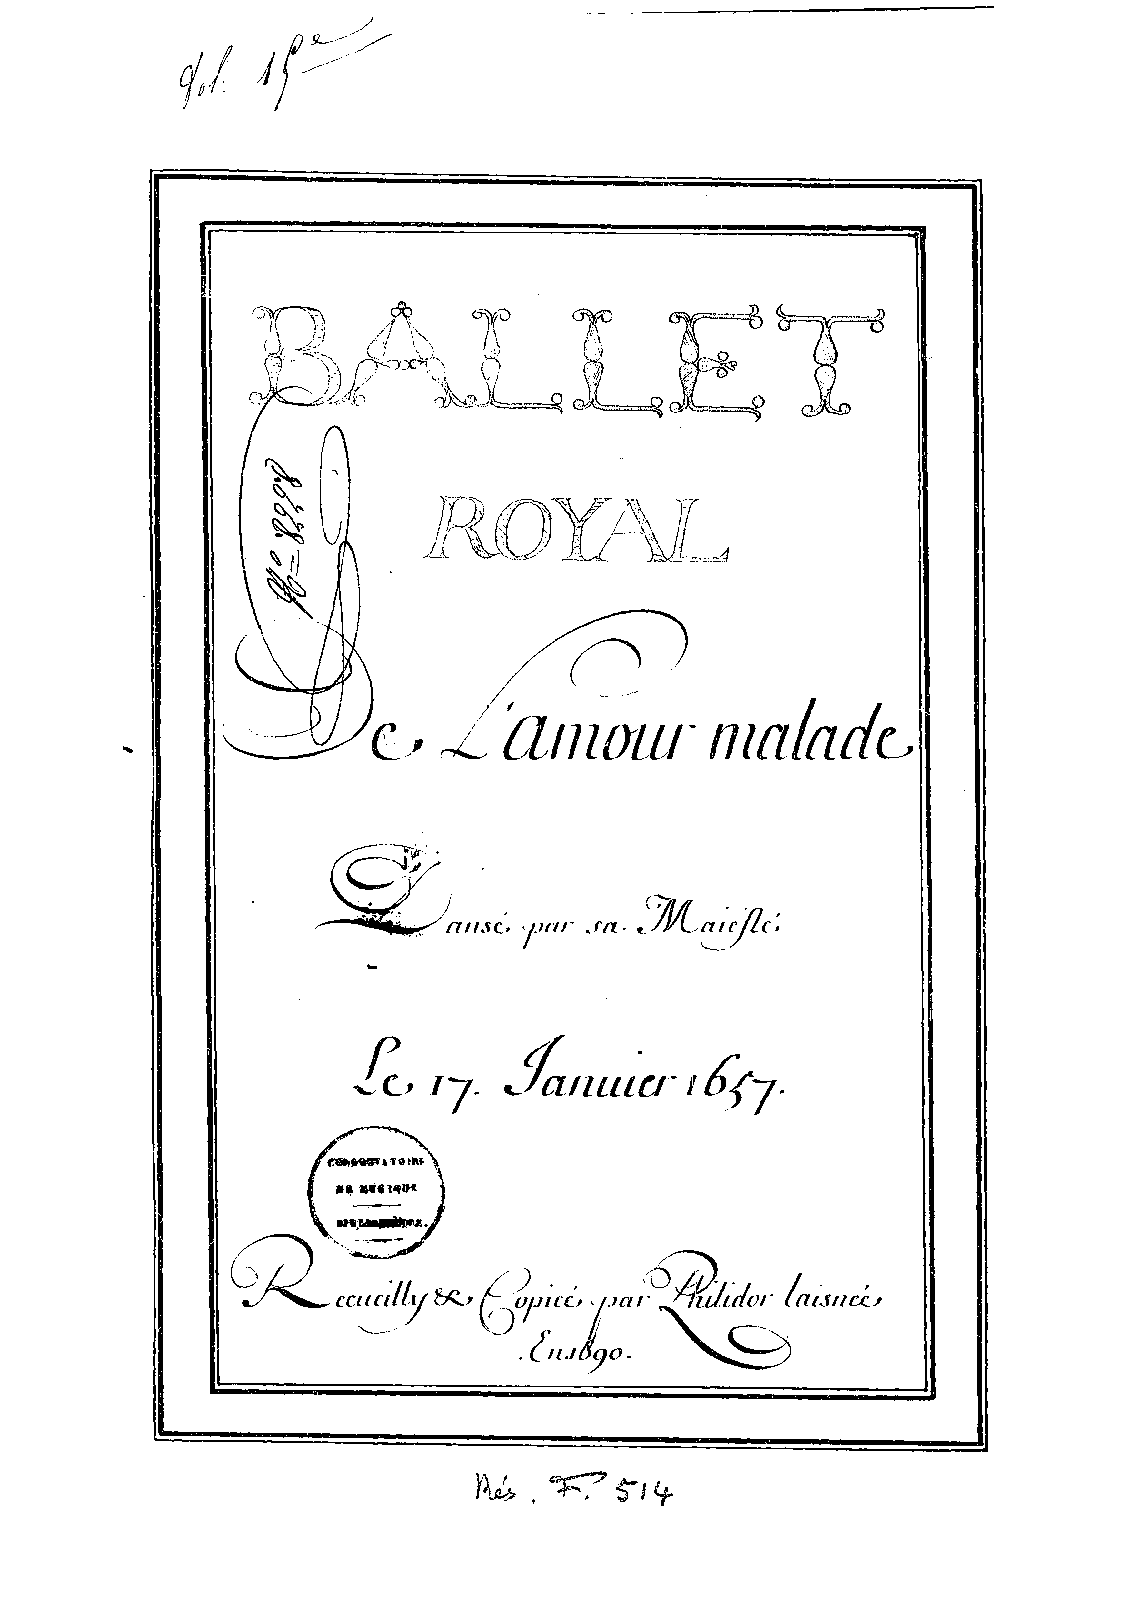 Vol. 15e
BALLET
ROYAL
De L'amour malade
Dansé par sa Maiesté
Le 17. Januier 1657.
CONSERVATOIRE
DE MUSIQUE
BIBLIOTHÈQUE.
Recueilly & Copiée par Philidor laisnée
En 1690.
Rés. F. 514